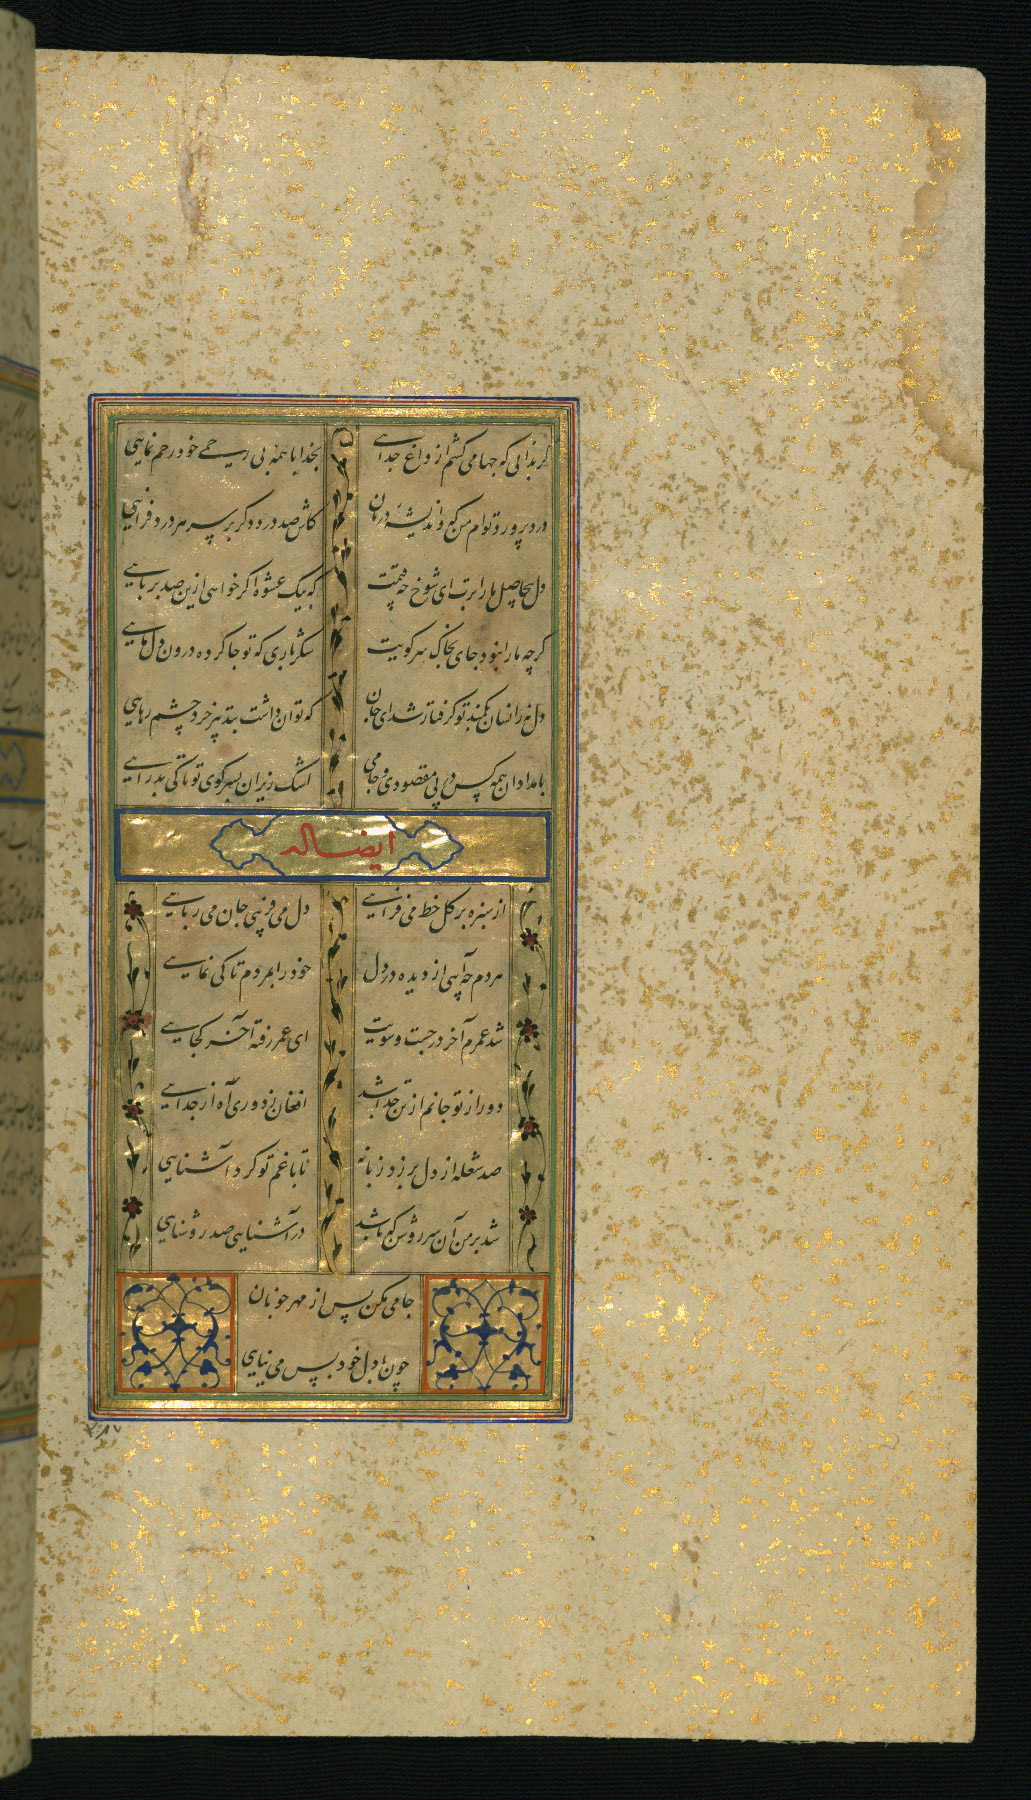 گر بدانی که چها می کشم از داغ جدایی بخدا با همه بی رحمی خود رحم نمایی
درد پرورد توام من که و اندیشهٔ درمان کاش صد درد دگر بر سر هر درد فزایی
دل بیحاصل ما را بر تو ای شوخ چه قیمت که بیک عشوه اگر خواهی ازین صد بربایی
گرچه ما را نبود جای بخاک سر کویت شکر باری که تو جا کرده درون دل مایی
دل نه زانسان بکمند تو گرفتار شد ای جان که توان داشت بتدبیر خرد چشم رهایی
بامدادان همه کس در پی مقصودی و جامی اشک ریزان بسر کوی تو تا کی بدر آیی
ایضا له
از سبزه بر گل خط می فزایی دل می فریبی جان می ربایی
مردم چه آیی از دیده در دل خود را بمردم تا کی نمایی
شد عمرم آخر در جست و جویت ای عمر رفته آخر کجایی
دور از تو جانم از تن جدا شد افغان ز دوری آه از جدایی
صد شعله از دل بر زد زبانه تا با غم تو کرد آشنایی
شد بر من آن سر روشن که باشد در آشنایی صد روشنایی
جامی مکن بس از مهر خوبان
چون با دل خود بس می نیایی